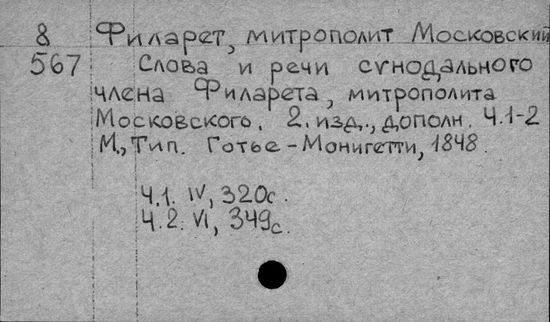 8 Филарет, митрополит Московский
567 Слова и речи сѵнодального
члена Филарета, митрополита
Московского. 2. изд., дополн. Ч.1-2
М., Тип. Готье-Монигетти, 1848.
Ч.1. IV, 320с.
Ч.2. VI, 349с.